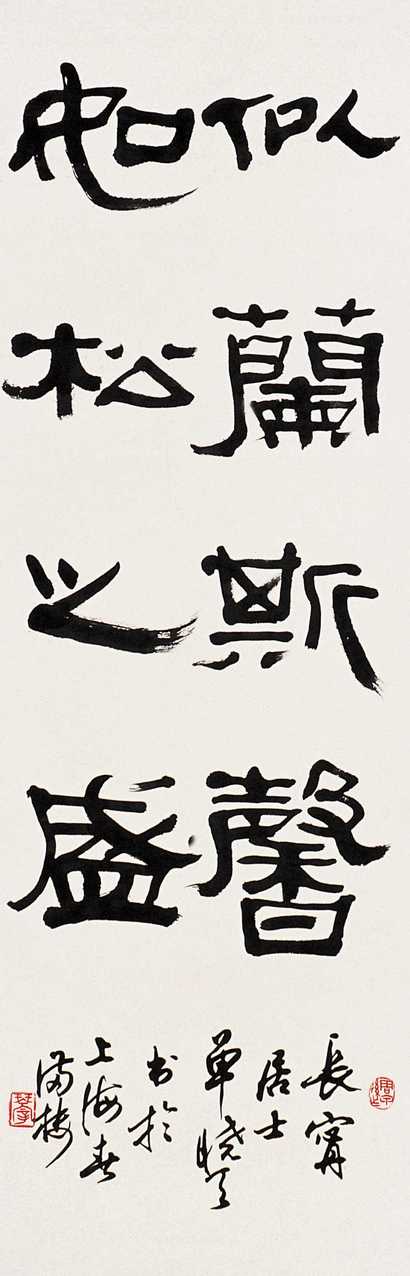 似蘭斯馨
如松之盛
長寧
居士
單曉天
書於
上海春
滿樓